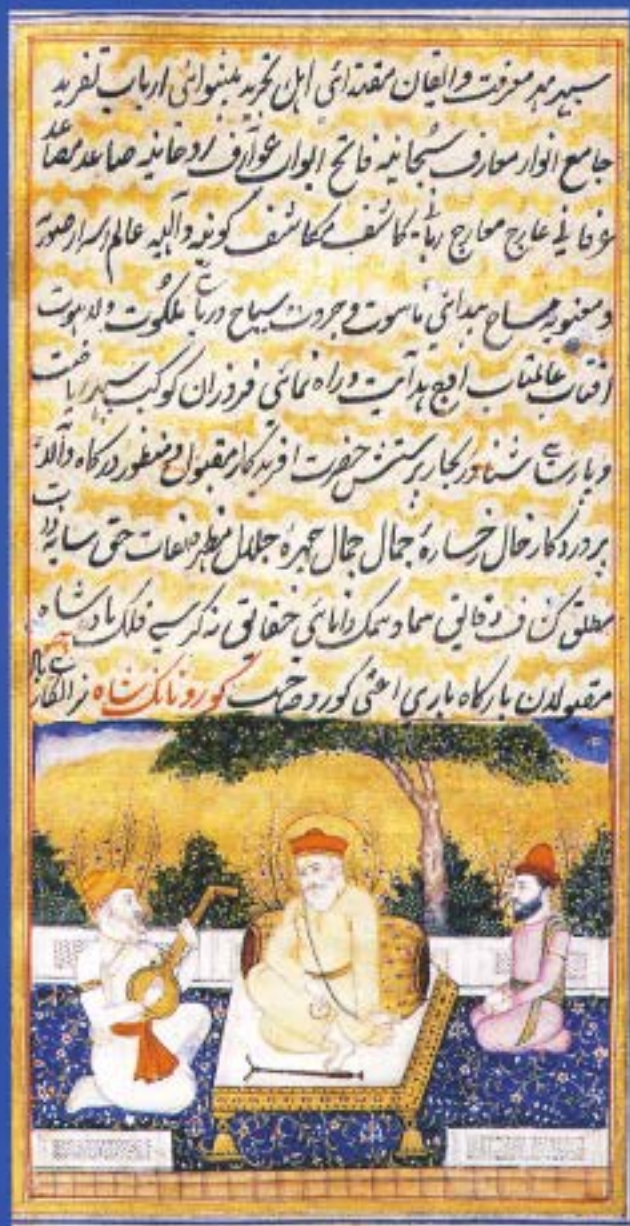 سپهر مهر معرفت والقان مقتدائی اهل تجرید پیشوائی ارباب تفرید
جامع انوار معارف سبحانیه فاتح ابواب عوارف روحانیه صاعد مصاعد
عرفانی عارج معارج ربانی کاشف مکاشف کونیه والهیه عالم اسرار صوریه
ومعنویه مساح بیدائی ناسوت وجبروت سیاح دریائی ملکوت ولاهوت
افتاب عالمتاب اوج هدآیت وراه نمائی فروزان کوکب سپهر
شناور بحار پرستش حضرت افریدکار مقبول ومنظور درکاه
پروردکار خال رخسارهٔ جمال جمال چهرهٔ جلال مظهر صفات حق
مطلق دقایق سما وسمک دانائی حقایق نه کرسی فلک پادشاه
مقبولان بارکاه باری اعنی کورو صاحب کورو نانک شاه